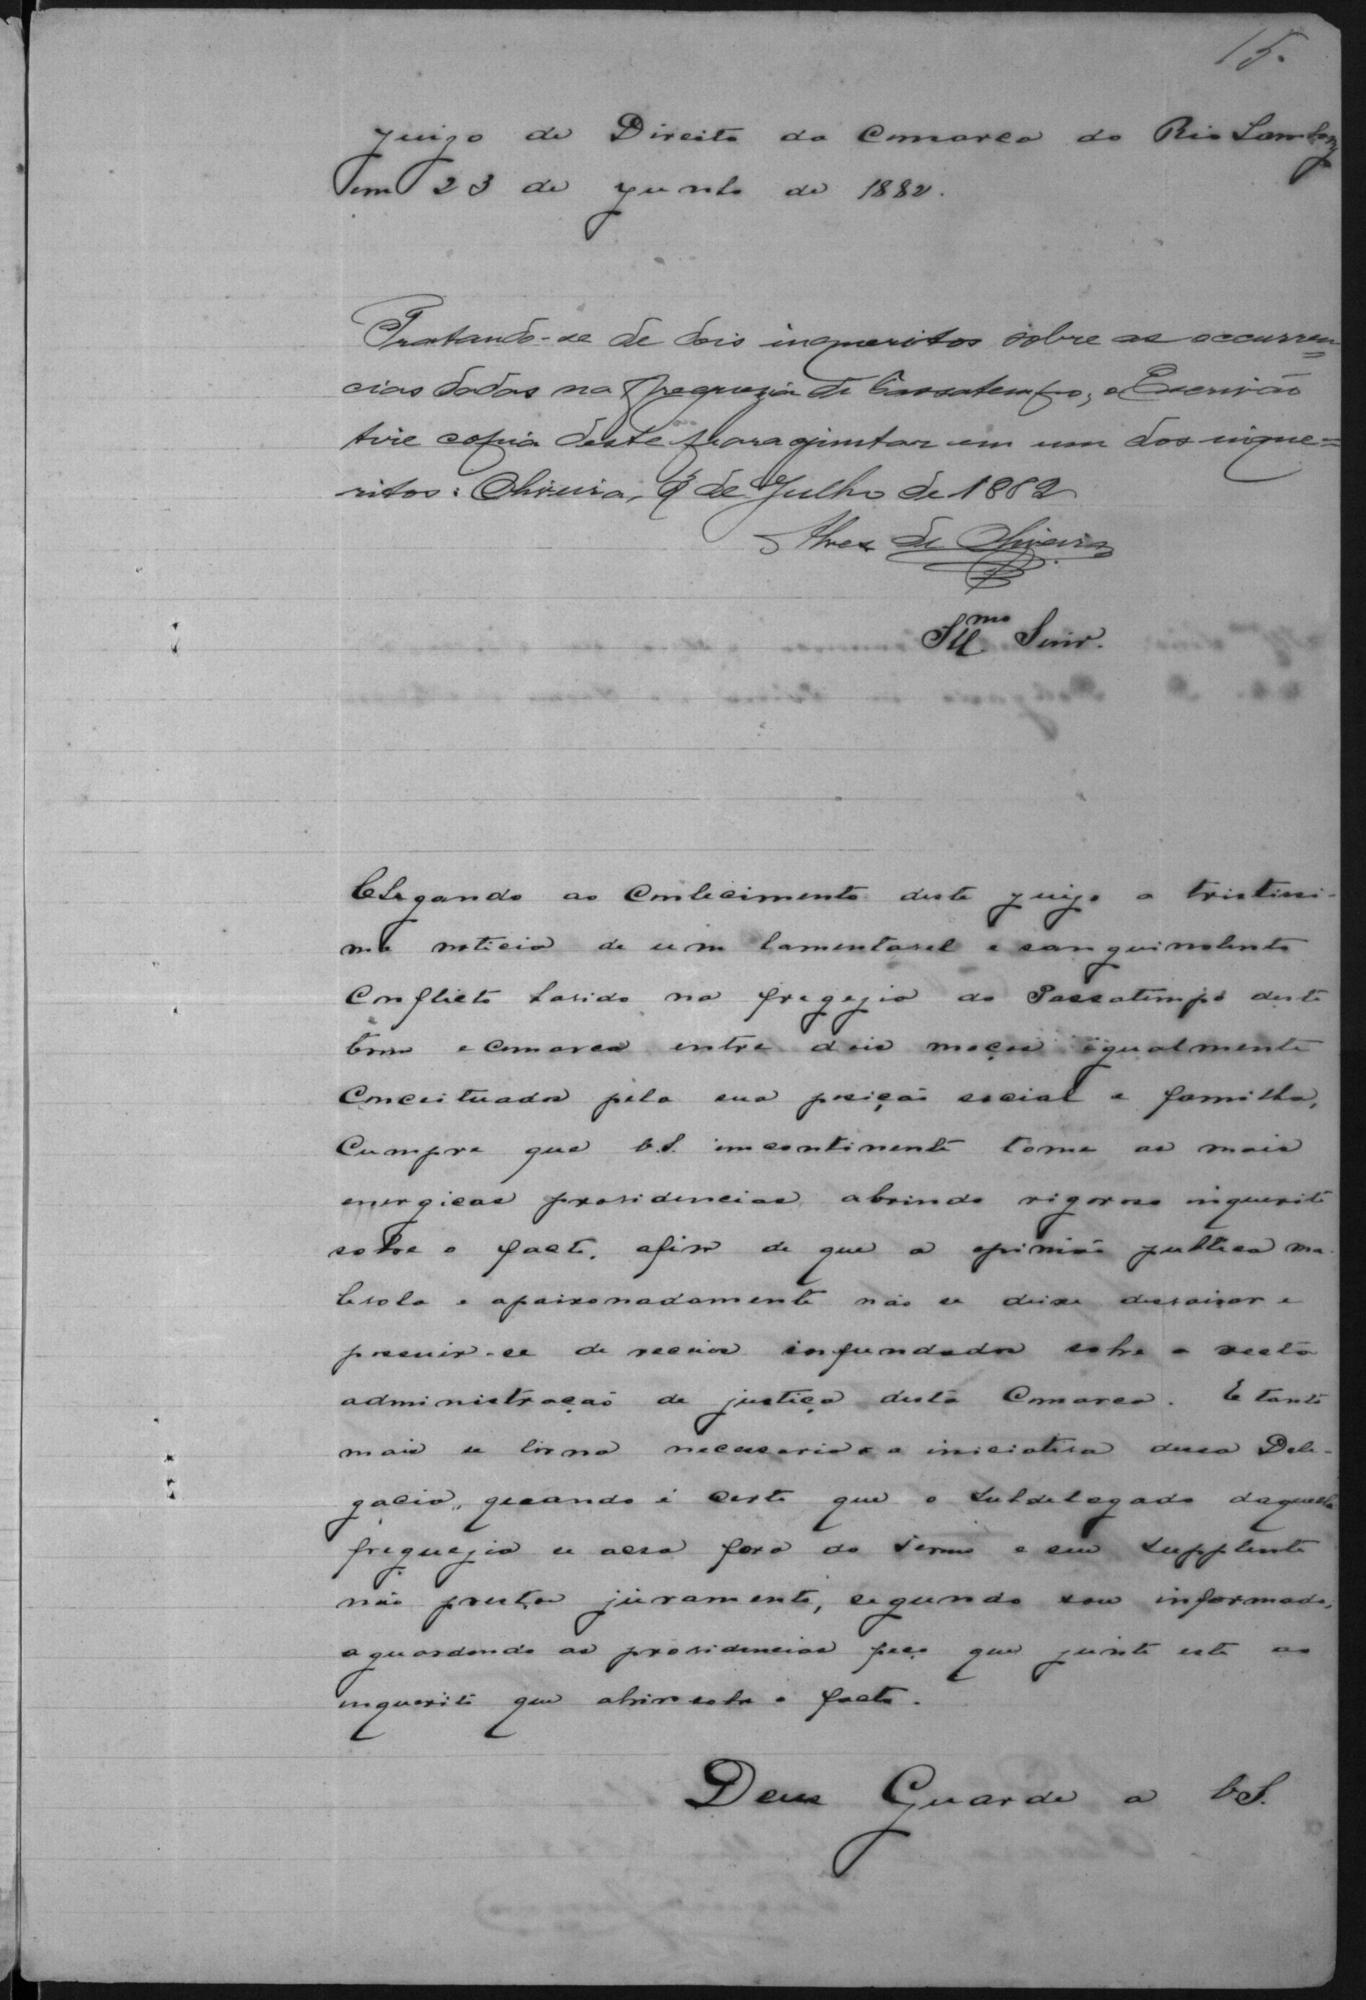 15.
Juizo de Direito da Comarca do Rio Lambary
em 23 de Junho de 1882.
Tratando-se de dois inqueritos sobre as occurren=
cias dadas na Freguezia de Passatempo, o Escrivão
tire copia deste para juntar em um dos inque=
ritos. Oliveira, 9 de Julho de 1882
Alves de Oliveira
Illmo Senr.
Chegando ao conhecimento deste juizo a tristissi-
ma noticia de um lamentavel e sanguinolento
conflicto havido na fregezia do Passatempo deste
termo e comarca entre dois moços igualmente
conceituados pela sua posição social e familha,
cumpre que V.S. incontinente tome as mais
energicas providencias abrindo rigoroso inquerito
sobre o facto, afim de que a opinião publica ma-
levola e apaixonadamente não se deixe desvairar e
possuir-se de receios infundados sobre a recta
administração de justiça desta Comarca. E tanto
mais se torna necessaria a iniciativa dessa Dele-
gacia, quando é certo que o subdelegado daquella
freguezia se acha fora do termo e seu supplente
não prestou juramento, segundo sou informado,
aguardando as providencias peço que junte este ao
inquerito que abrir sobre o facto.
Deus Guarde a V.S.